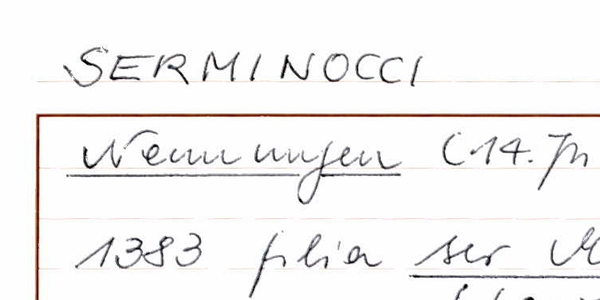 SERMINOCCI
Nennungen (14. Jh
1383 filia ser